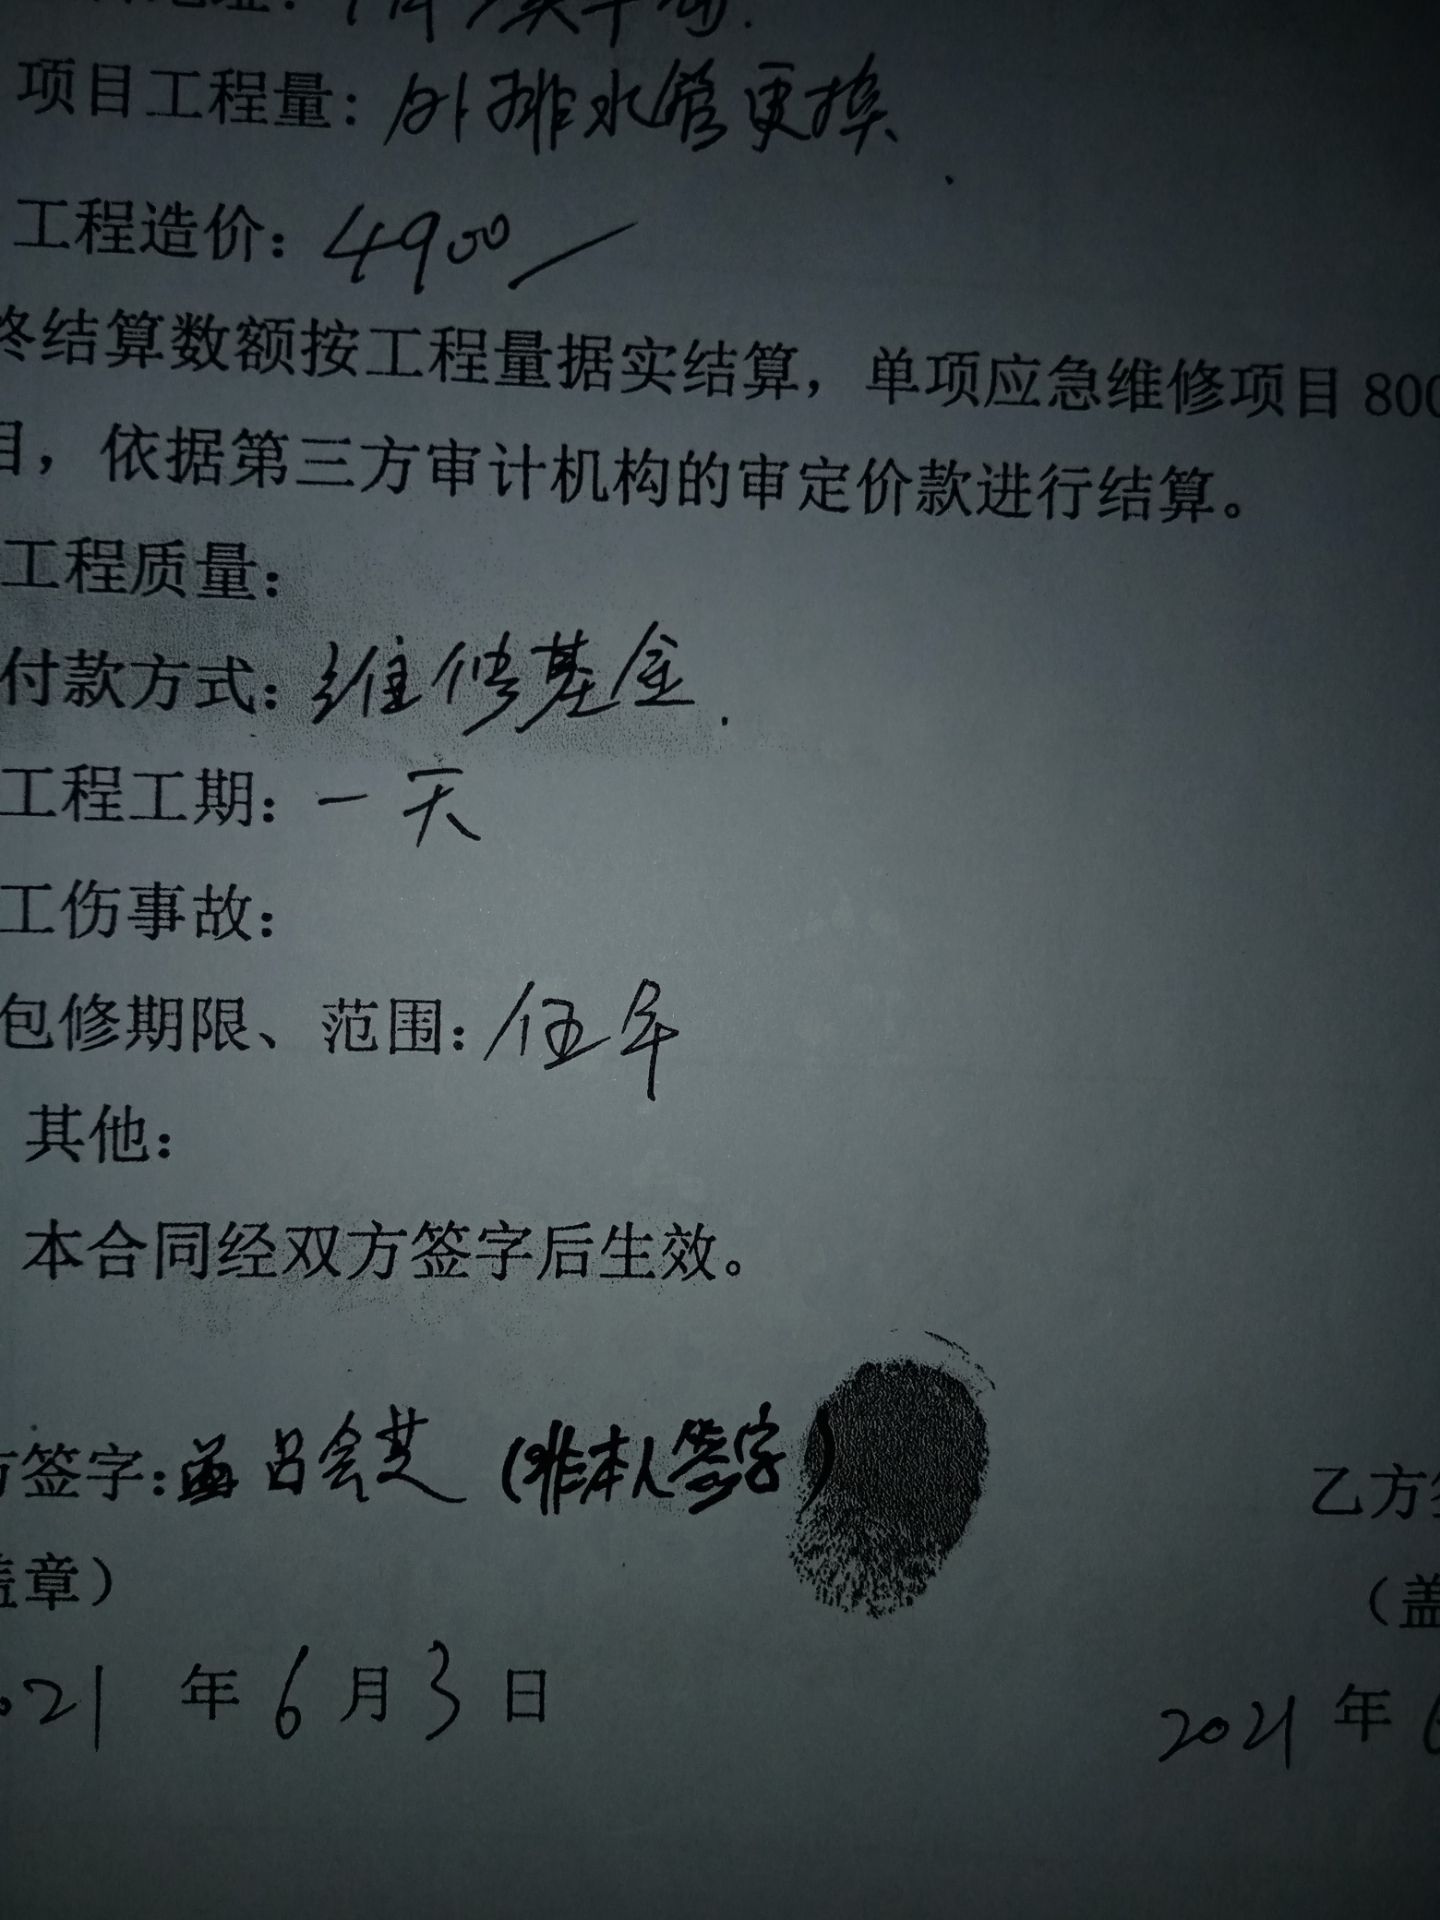 项目工程量：外排水管更换、
工程造价：4900
终结算数额按工程量据实结算，单项应急维修项目800
目，依据第三方审计机构的审定价款进行结算。
工程质量：
付款方式：维修基金.
工程工期：一天
工伤事故：
包修期限、范围：伍年
其他：
本合同经双方签字后生效。
方签字：吕会芝（非本人签字）
乙方签
盖章）
（盖
2021 年 6 月 3 日
2021 年 6